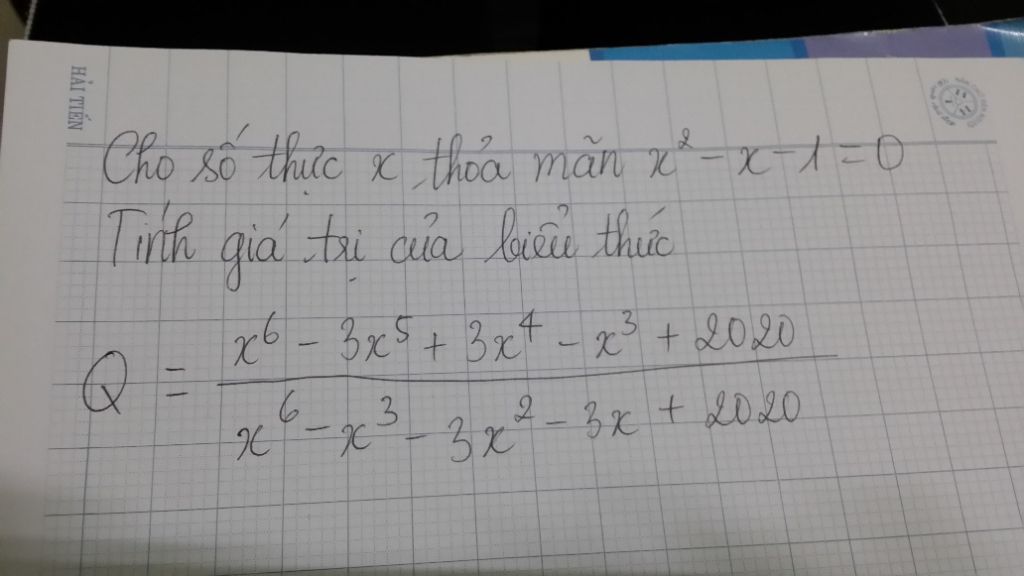 HẢI TIẾN
Cho số thực x thỏa mãn x² - x - 1 = 0
Tính giá trị của biểu thức
Q = \frac{x^6 - 3x^5 + 3x^4 - x^3 + 2020}{x^6 - x^3 - 3x^2 - 3x + 2020}